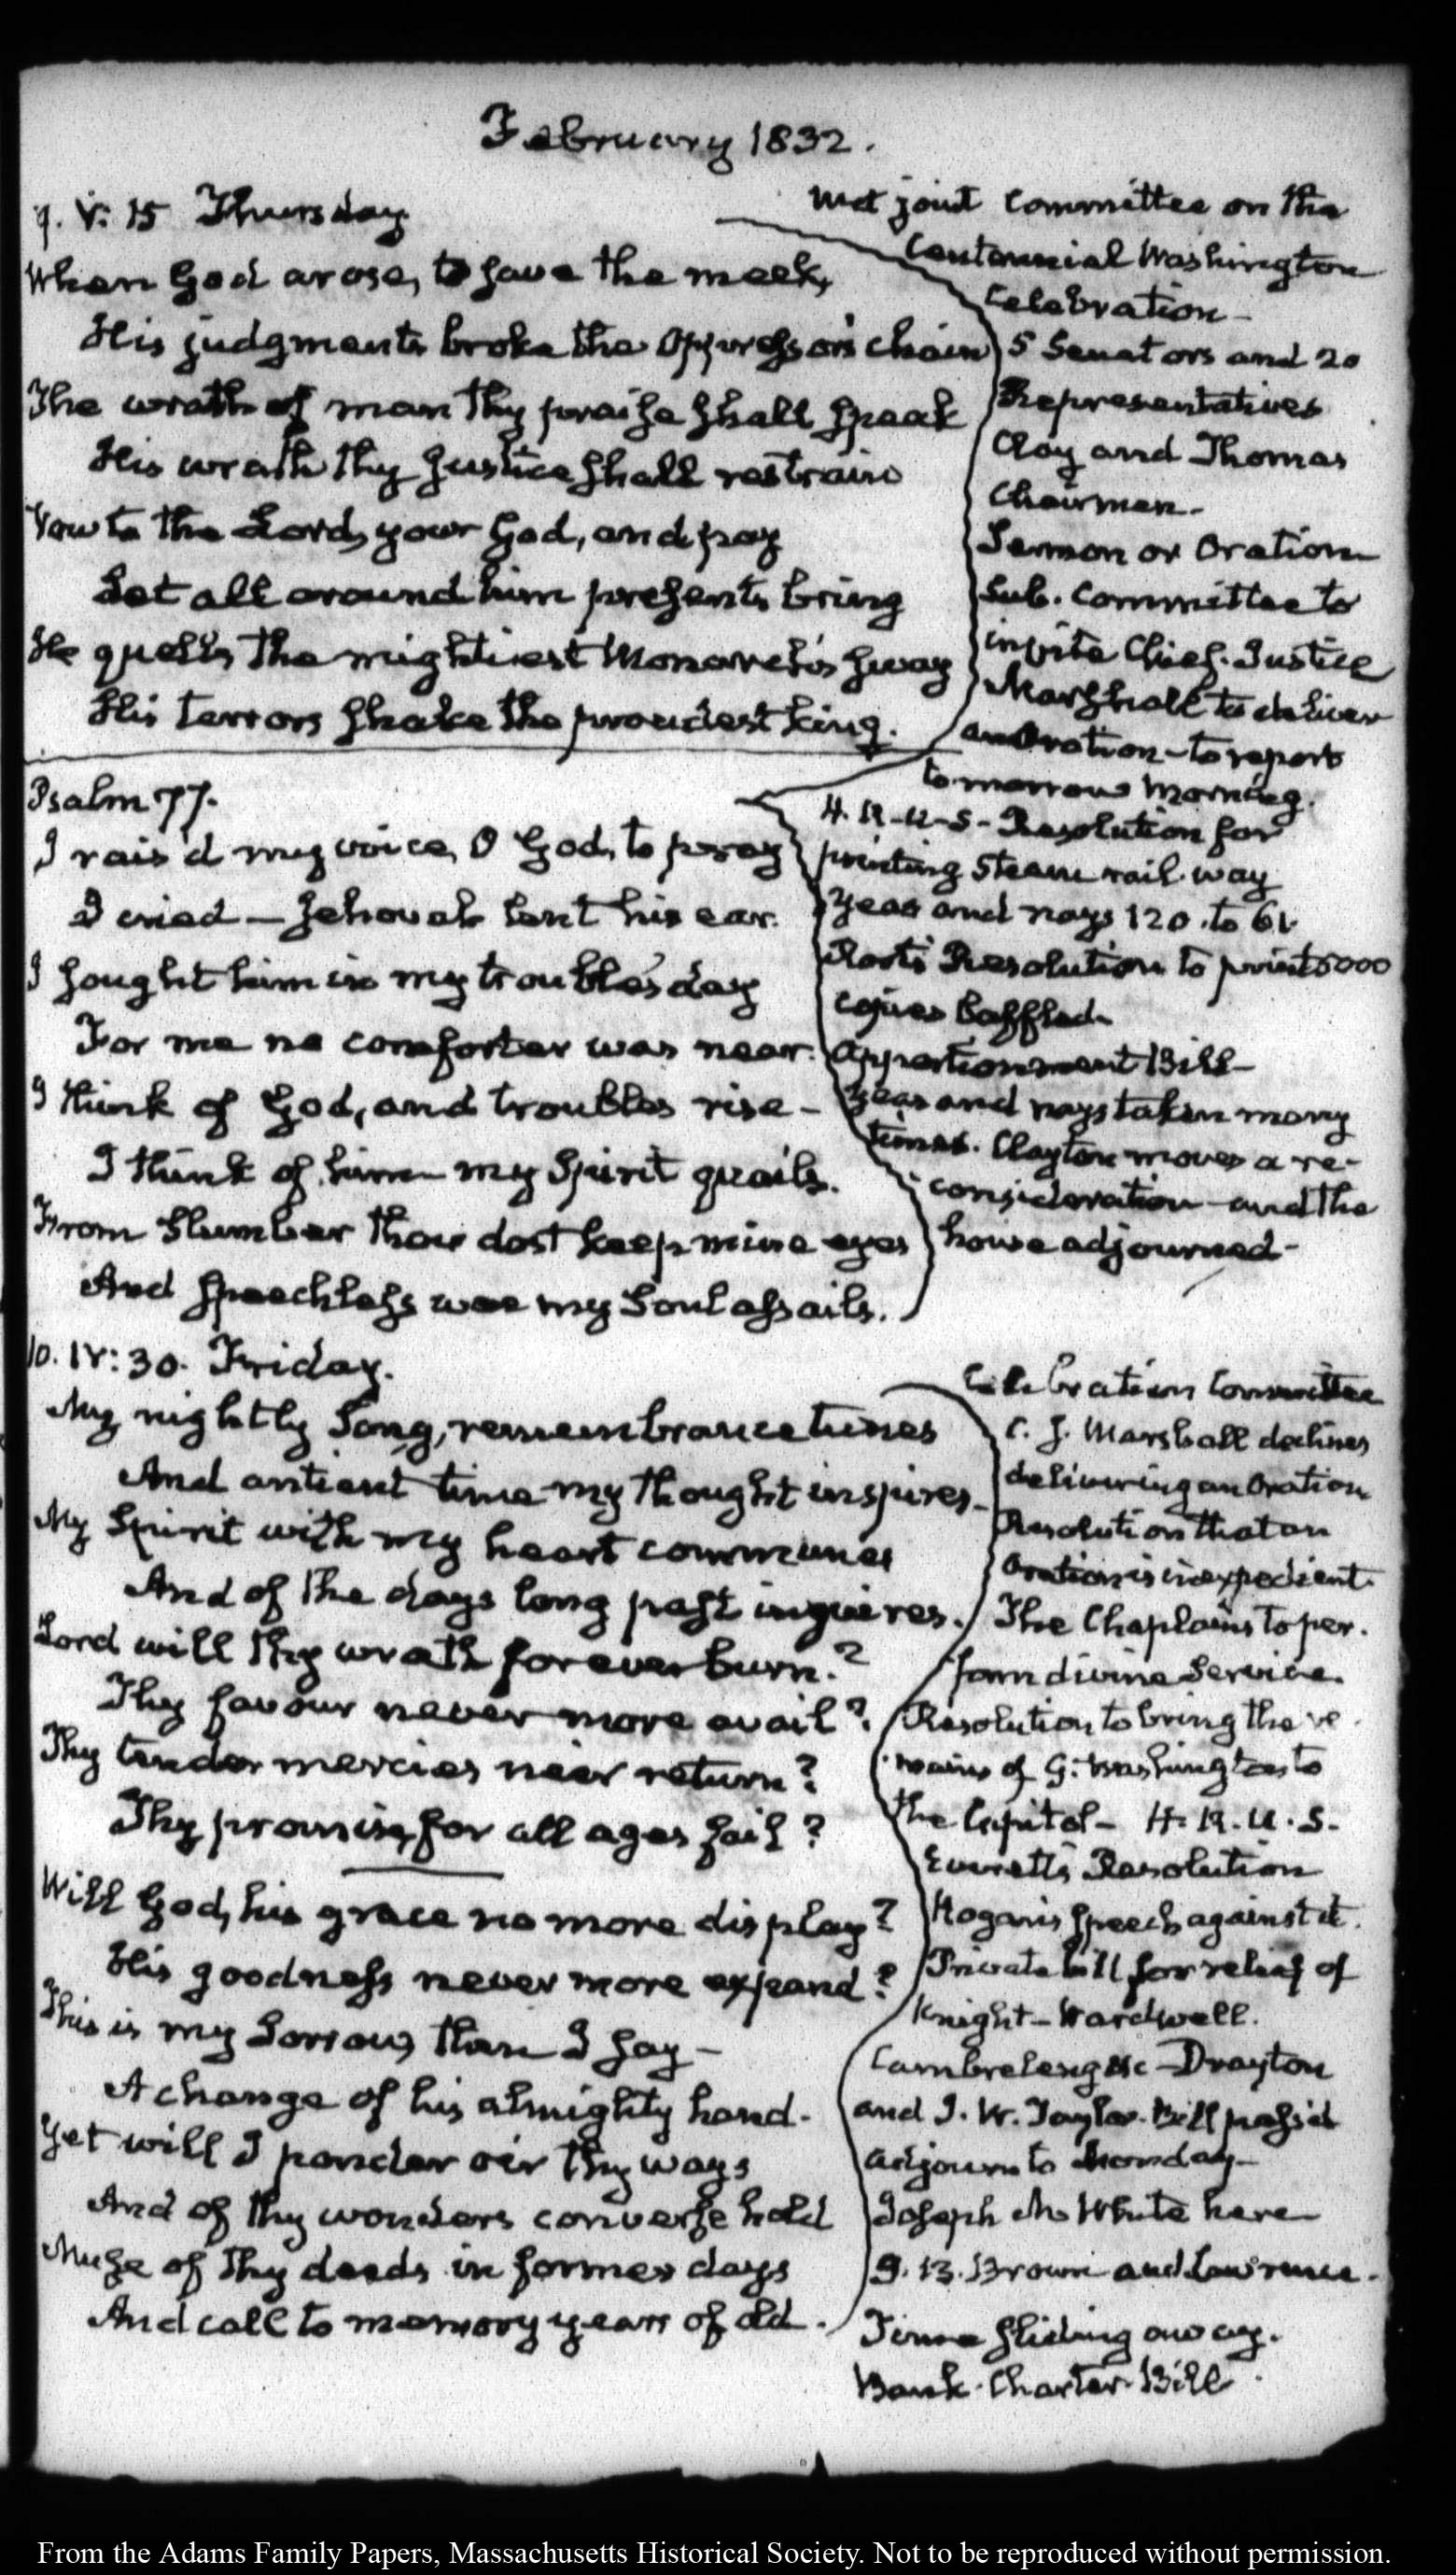 February 1832.
9. V: 15 Thursday
When God arose, to save the meek,
His judgments broke the Oppressor's chain
The wrath of man thy praise shall speak
His wrath thy justice shall restrain
Vow to the Lord, your God, and pay
Let all around him presents bring
He quells the mightiest Monarch's sway
His terrors shake the proudest king.
Met joint Committee on the
Centennial Washington
Celebration—
5 Senators and 20
Representatives
Clay and Thomas
Chairmen.
Sermon or Oration
Sub. Committee to
invite Chief. Justice
Marshall to deliver
an Oration—to report
to-morrow Morning.
Psalm 77.
I rais'd my voice, O God, to pray
I cried — Jehovah lent his ear.
I sought him in my trouble's day
For me no comforter was near.
I think of God, and troubles rise—
I think of him— my Spirit quails.
From Slumber thou dost keep mine eyes
And speechless woe my Soul assails.
H. R. U. S.- Resolution for
printing Steam rail way
Yeas and nays 120 to 61
Root's Resolution to print 6000
copies baffled-
Apportionment Bill—
Yeas and nays taken many
times. Clayton moves a re-
consideration—and the
house adjourned-
10. IV: 30. Friday.
My nightly Song, remembrance tunes
And antient time my thought inspires—
My Spirit with my heart communes
And of the days long past inquires.
Lord will thy wrath forever burn.?
Thy favour never more avail?
Thy tender mercies ne'er return?
Thy promise, for all ages fail?
Will God, his grace no more display?
His goodness never more expand?
This is my Sorrow, then I say—
A change of his almighty hand.
Yet will I ponder o'er thy ways
And of thy wonders converse hold
Muse of thy deeds in former days
And call to memory years of old.
Celebration Committee
C. J. Marshall declines
delivering an Oration
Resolution that an
Oration is inexpedient.
The Chaplains to per.
form divine Service.
Resolution to bring the re.
mains of G. Washington to
the Capitol— H. R. U. S.
Everett's Resolution
Hogan's Speech against it.
Private bill for relief of
Knight—Wardwell.
Cambreleng &c—Drayton
and J. W. Taylor. Bill pass'd
adjourn to Monday—
Joseph M. White here
J. B. Brown and Lawrence.
Time sliding away.
Bank. Charter. Bill.
From the Adams Family Papers, Massachusetts Historical Society. Not to be reproduced without permission.